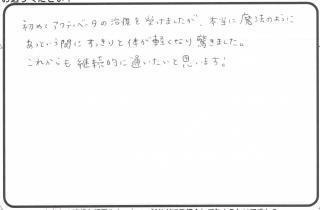 初めてアクティベータの治療を受けましたが、本当に魔法のように
あっという間にすっきりと体が軽くなり驚きました。
これからも継続的に通いたいと思います!